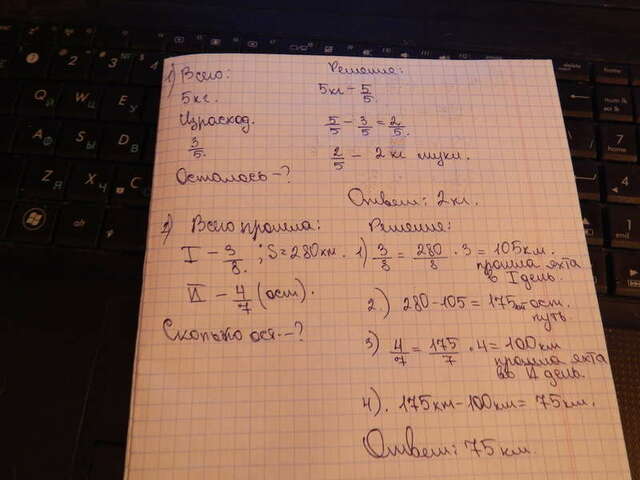 1) Всего:
5кг.
Израсход.
3/5.
Осталось-?
Решение:
5кг - 5/5.
5/5 - 3/5 = 2/5.
2/5 - 2 кг муки.
Ответ: 2 кг.
2) Всего прошла:
I - 3/8. ; S=280км.
II - 4/7 (ост).
Сколько ост.-?
Решение:
1) 3/8 = 280/8 · 3 = 105км.
прошла яхта
в I день.
2.) 280-105=175км ост.
путь
3) 4/7 = 175/7 · 4 = 100км
прошла яхта
во II день.
4). 175км-100км= 75км.
Ответ: 75 км.